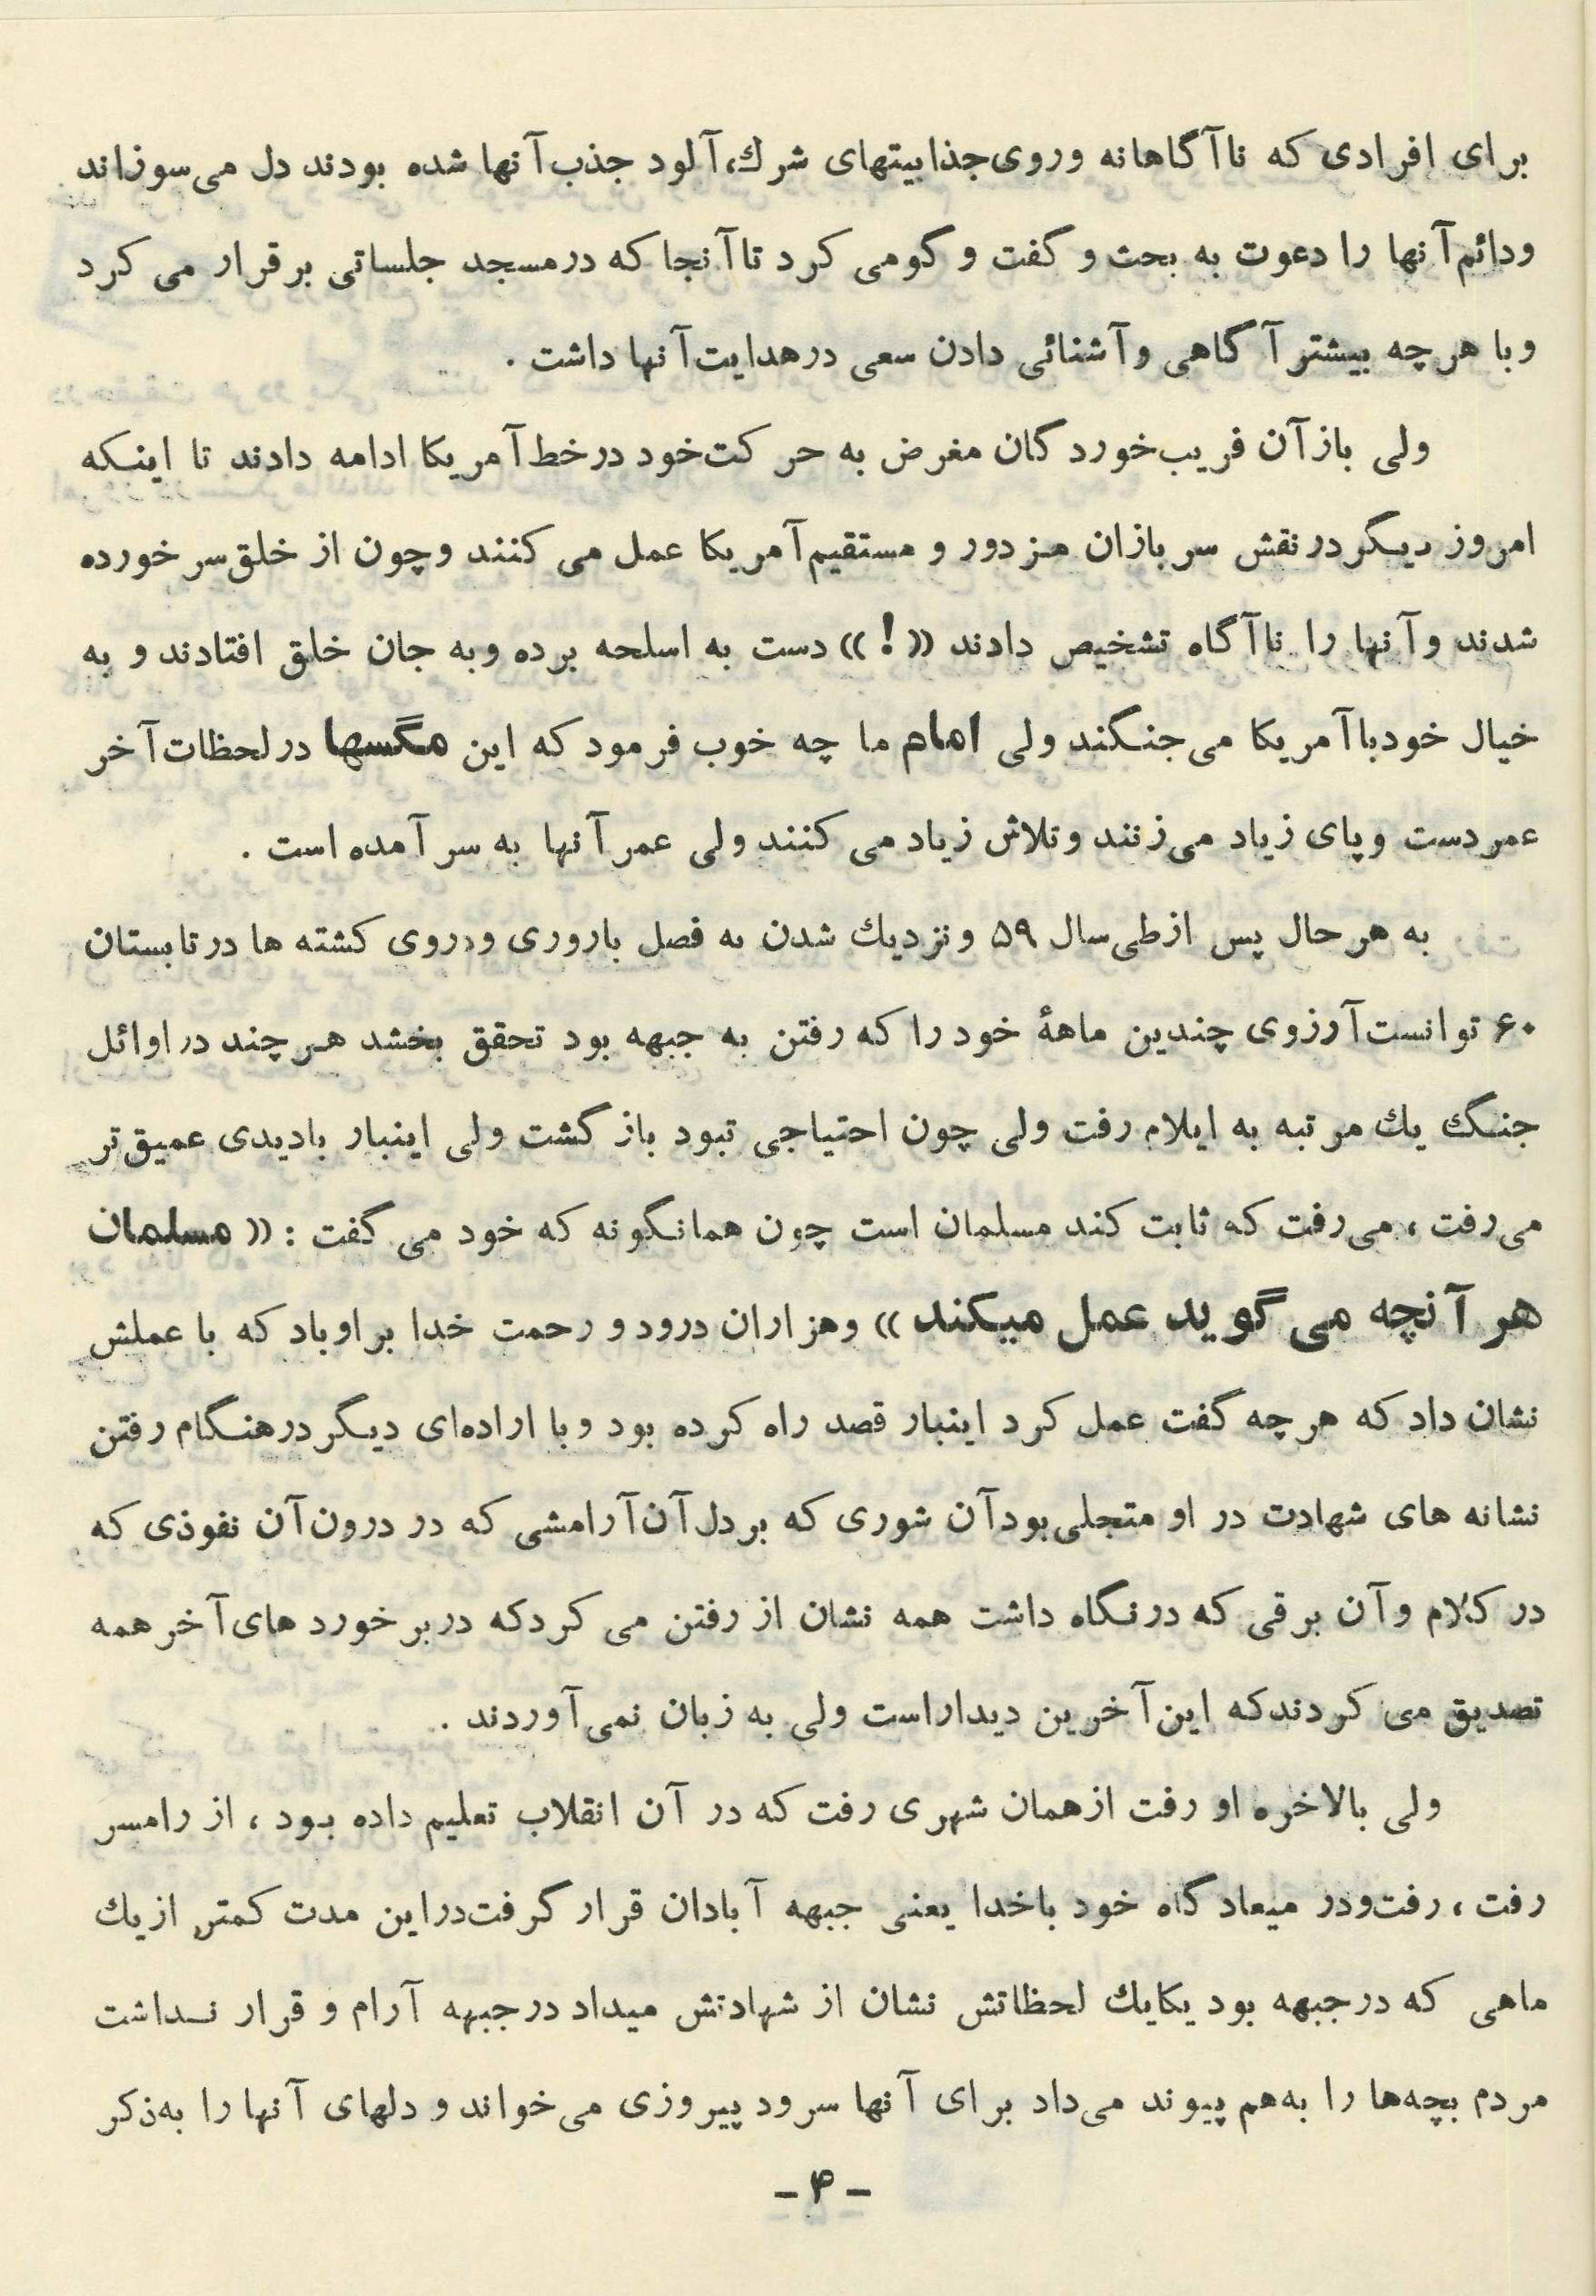 برای افرادی که ناآگاهانه وروی‌جذابیتهای شرك،آلود جذب‌آنها شده بودند دل می‌سوزاند
ودائم‌آنها را دعوت به بحث و گفت و گومی کرد تاآنجا که درمسجد جلساتی برقرار می کرد
وبا هرچه بیشتر آگاهی وآشنائی دادن سعی درهدایت‌آنها داشت .
ولی بازآن فریب‌خوردگان مغرض به حرکت‌خود درخط‌آمریکا ادامه دادند تا اینکه
امروز دیگر درنقش سربازان مزدور و مستقیم‌آمریکا عمل می کنند وچون از خلق‌سرخورده
شدند وآنها را ناآگاه تشخیص دادند «!» دست به اسلحه برده وبه جان خلق افتادند و به
خیال خودباآمریکا می‌جنگند ولی امام ما چه خوب فرمود که این مگسها درلحظات‌آخر
عمردست وپای زیاد می‌زنند وتلاش زیاد می کنند ولی عمرآنها به سرآمده است .
به هرحال پس ازطی‌سال ۵۹ ونزدیك شدن به فصل باروری ودروی کشته ها درتابستان
۶۰ توانست‌آرزوی چندین ماههٔ خود را که رفتن به جبهه بود تحقق بخشد هرچند دراوائل
جنگ یك مرتبه به ایلام رفت ولی چون احتیاجی نبود بازگشت ولی اینبار بادیدی عمیق‌تر
می‌رفت ، می‌رفت که ثابت کند مسلمان است چون همانگونه که خود می گفت : « مسلمان
هر آنچه می گوید عمل میکند » وهزاران درود و رحمت خدا براوباد که با عملش
نشان داد که هرچه گفت عمل کرد اینبار قصد راه کرده بود وبا اراده‌ای دیگر درهنگام رفتن
نشانه های شهادت در او متجلی‌بودآن شوری که بردل‌آن‌آرامشی که در درون‌آن نفوذی که
در کلام وآن برقی که درنگاه داشت همه نشان از رفتن می کردکه دربرخورد های‌آخر همه
تصدیق می کردندکه این‌آخرین دیداراست ولی به زبان نمی‌آوردند .
ولی بالاخره او رفت ازهمان شهری رفت که در آن انقلاب تعلیم داده بود ، از رامسر
رفت ، رفت‌ودر میعادگاه خود باخدا یعنی جبهه آبادان قرار گرفت‌دراین مدت کمتر ازیك
ماهی که درجبهه بود یکایك لحظاتش نشان از شهادتش میداد درجبهه آرام و قرار نداشت
مردم بچه‌ها را به‌هم پیوند می‌داد برای آنها سرود پیروزی می‌خواند و دلهای آنها را به‌ذکر
-۴-